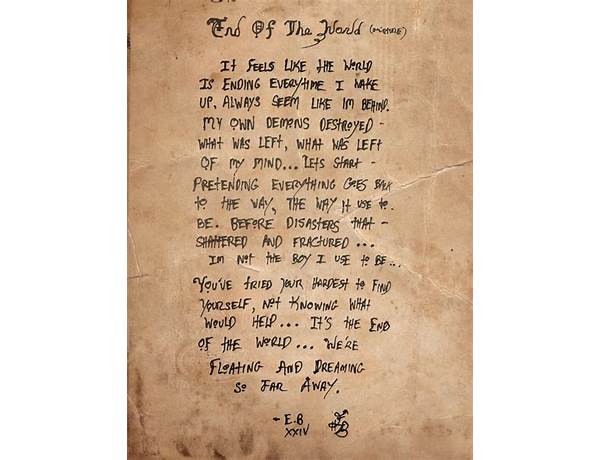 End Of The World
It feels like the world
is ending everytime I wake
up, always seem like im behind.
My own demons destroyed -
what was left, what was left
of my mind... Lets start -
pretending everything goes back
to the way, the way it use to
be. Before disasters that -
shattered and fractured ...
Im not the boy I use to be...
You've tried your hardest to find
yourself, not knowing what
would help... It's the end
of the world... We're
floating and dreaming
so far away.
- E.B
XXIV